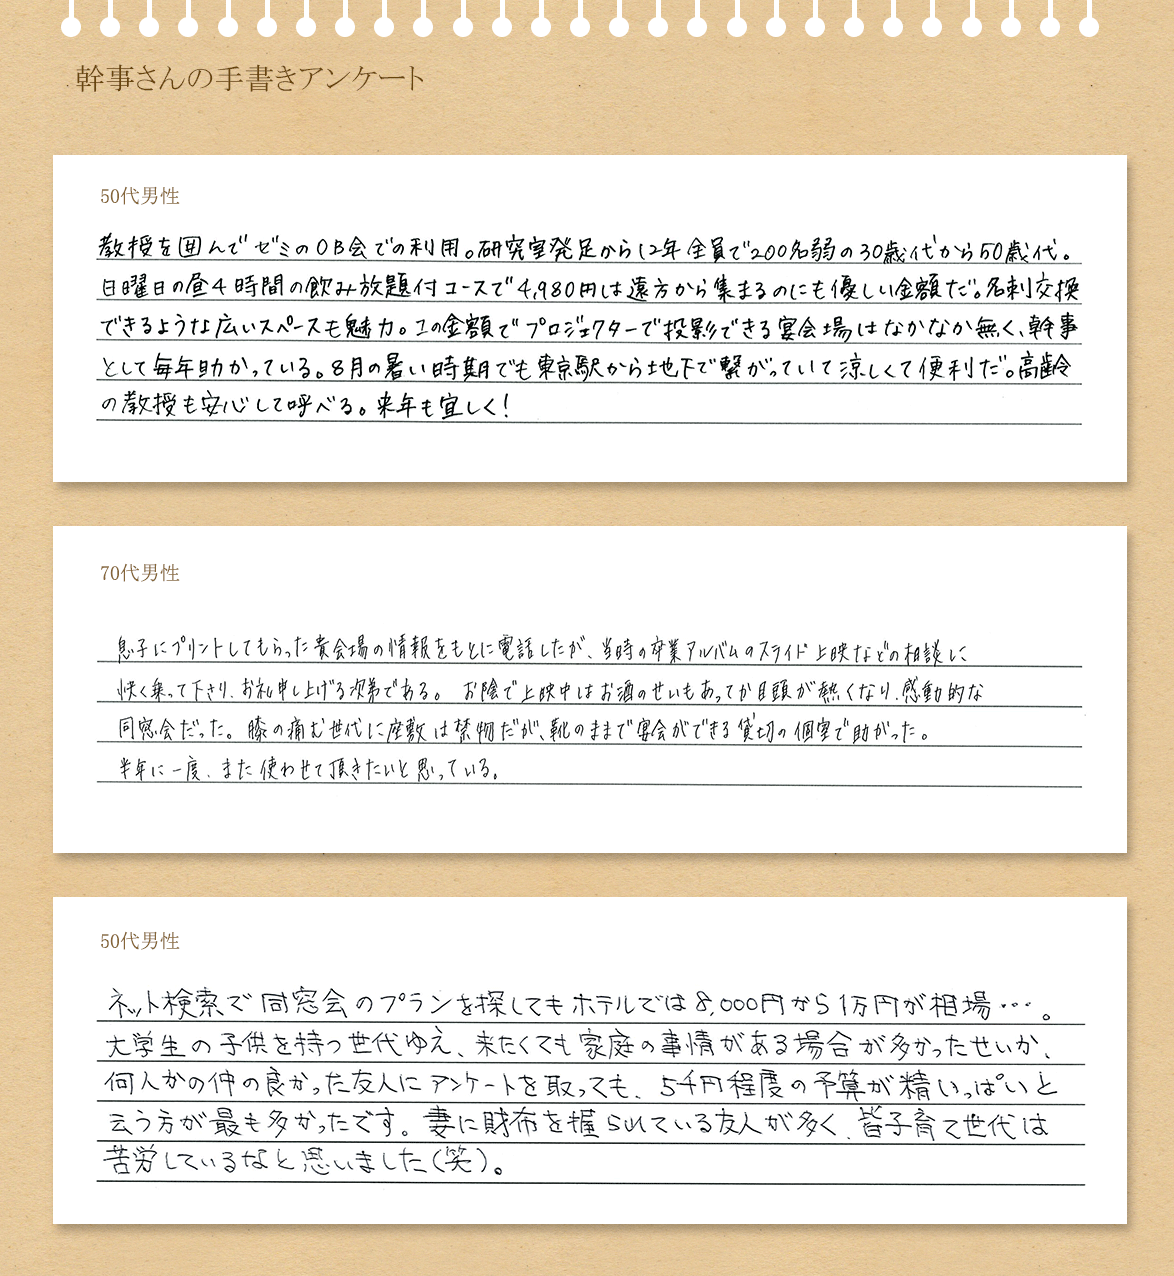 幹事さんの手書きアンケート
50代男性
教授を囲んでゼミのOB会での利用。研究室発足から12年全員で200名弱の30歳代から50歳代。
日曜日の昼4時間の飲み放題付コースで4,980円は遠方から集まるのにも優しい金額だ。名刺交換
できるような広いスペースも魅力。この金額でプロジェクターで投影できる宴会場はなかなか無く、幹事
として毎年助かっている。8月の暑い時期でも東京駅から地下で繋がっていて涼しくて便利だ。高齢
の教授も安心して呼べる。来年も宜しく!
70代男性
息子にプリントしてもらった貴会場の情報をもとに電話したが、当時の卒業アルバムのスライド上映などの相談に
快く乗って下さり、お礼申し上げる次第である。 お陰で上映中はお酒のせいもあってか目頭が熱くなり、感動的な
同窓会だった。膝の痛む世代に座敷は禁物だが、靴のままで宴会ができる貸切の個室で助かった。
半年に一度、また使わせて頂きたいと思っている。
50代男性
ネット検索で同窓会のプランを探してもホテルでは8,000円から1万円が相場…。
大学生の子供を持つ世代ゆえ、来たくても家庭の事情がある場合が多かったせいか、
何人かの仲の良かった友人にアンケートを取っても、5千円程度の予算が精いっぱいと
云う方が最も多かったです。妻に財布を握られている友人が多く、皆子育て世代は
苦労しているなと思いました(笑)。